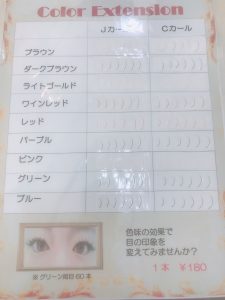 Color Extension
Jカール Cカール
ブラウン
ダークブラウン
ライトゴールド
ワインレッド
レッド
パープル
ピンク
グリーン
ブルー
色味の効果で
目の印象を
変えてみませんか?
1本 ¥180
※グリーン両目60本